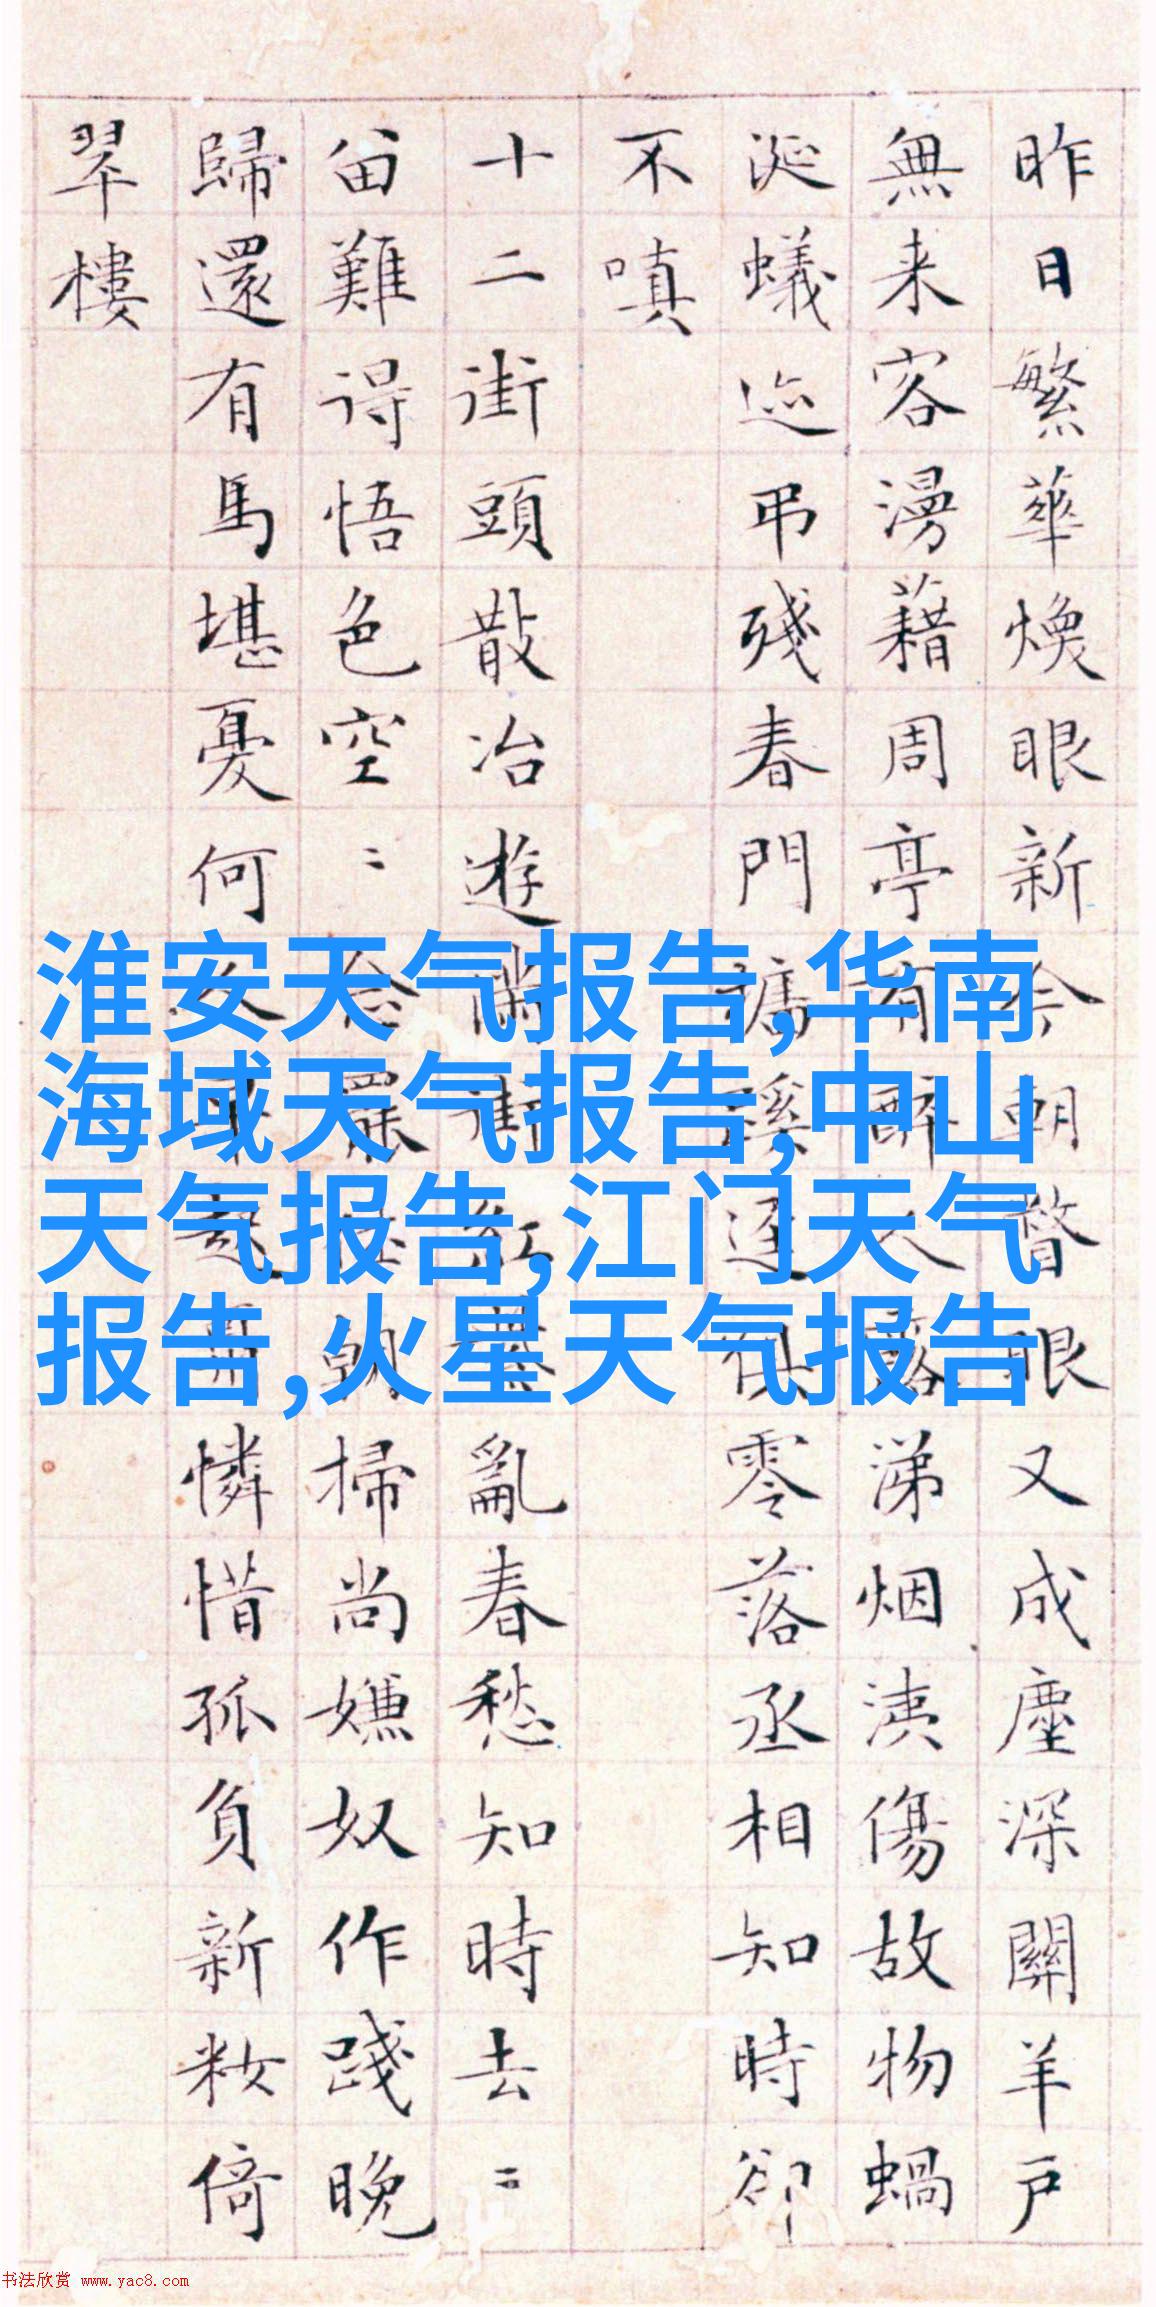 昨日繁華煥眼新今朝瞥眼又成塵深關羊戶
無来客漫藉周亭有醉人露涕烟洟傷故物蝸
涎蟻迹弔残春門掩蹊逕俱零落丞相知時卻
不嗔
十二街頭散冶遊滿街紅亂春愁知時去〻
留難得悟色空〻念掃尚嫌奴作踐晚
歸還有馬堪憂何人早起憐惜孤負新妝倚
翠樓
淮安天气报告,华南
海域天气报告,中山
天气报告,江门天气
报告,火星天气报告
书法欣赏 www.yac8.com